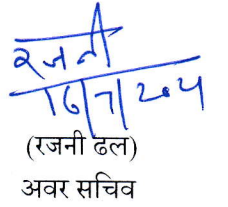 रजनी
16/7/2024
(रजनी ढल)
अवर सचिव